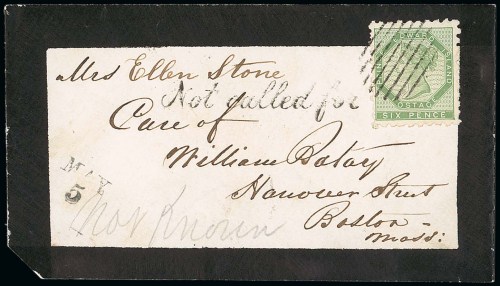 EDWARD
POSTAGE
SIX PENCE
Mrs Ellen Stone
Not called for
Care of
William Batay
Hanover Street
Boston
Mass:
MAY
5
Not Known